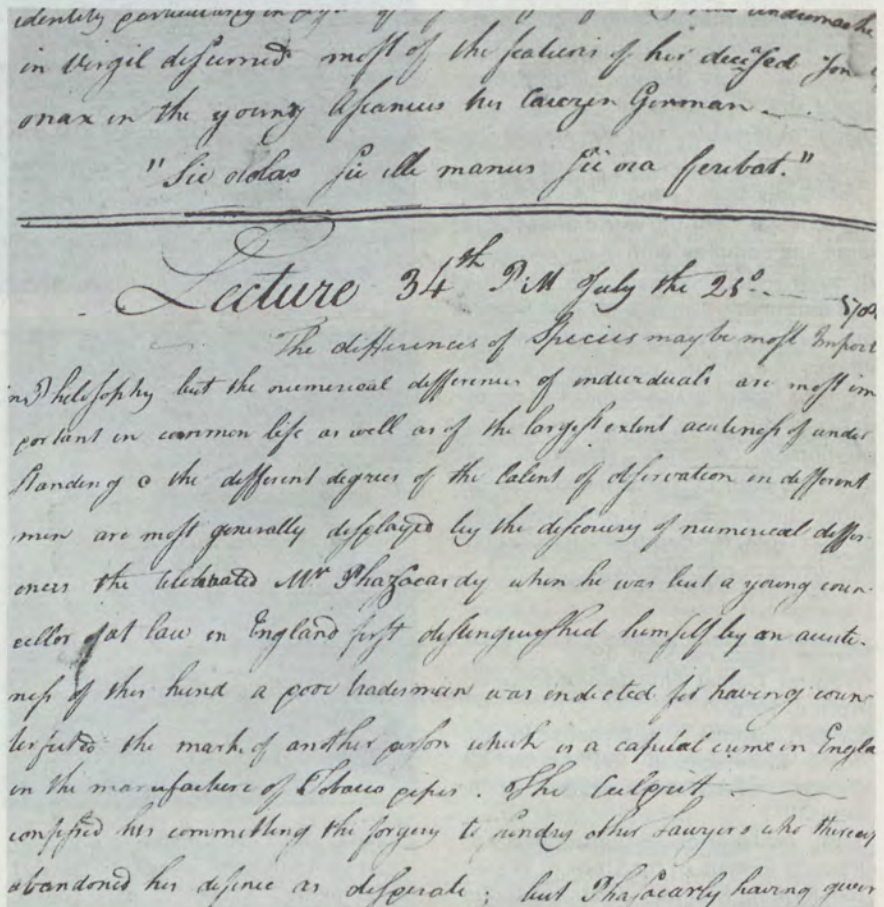 identity particularly in
in Virgil discerned most of the features of her deceased son
onax in the young Ascanius her Cawzen German
"Sic oclos sic ille manus sic ora ferebat."
Lecture 34th July the 25o.
The differences of Species may be most Import
in Philosophy but the numerical differences of individuals are most im
portant in common life as well as of the largest extent acuteness of under
standing & the different degrees of the talent of observation in different
men are most generally displayed by the discovery of numerical differ
ences the celebrated Mr when he was but a young coun
cellor at law in England first distinguished himself by an acute-
ness of this kind a poor tradesman was indicted for having coun
terfeited the mark of another person which is a capital crime in Engla
in the manufacture of Tobacco pipes. The Culprit
confessed his committing the forgery to sundry other Lawyers who thereup
abandoned his defence as desperate; but having given